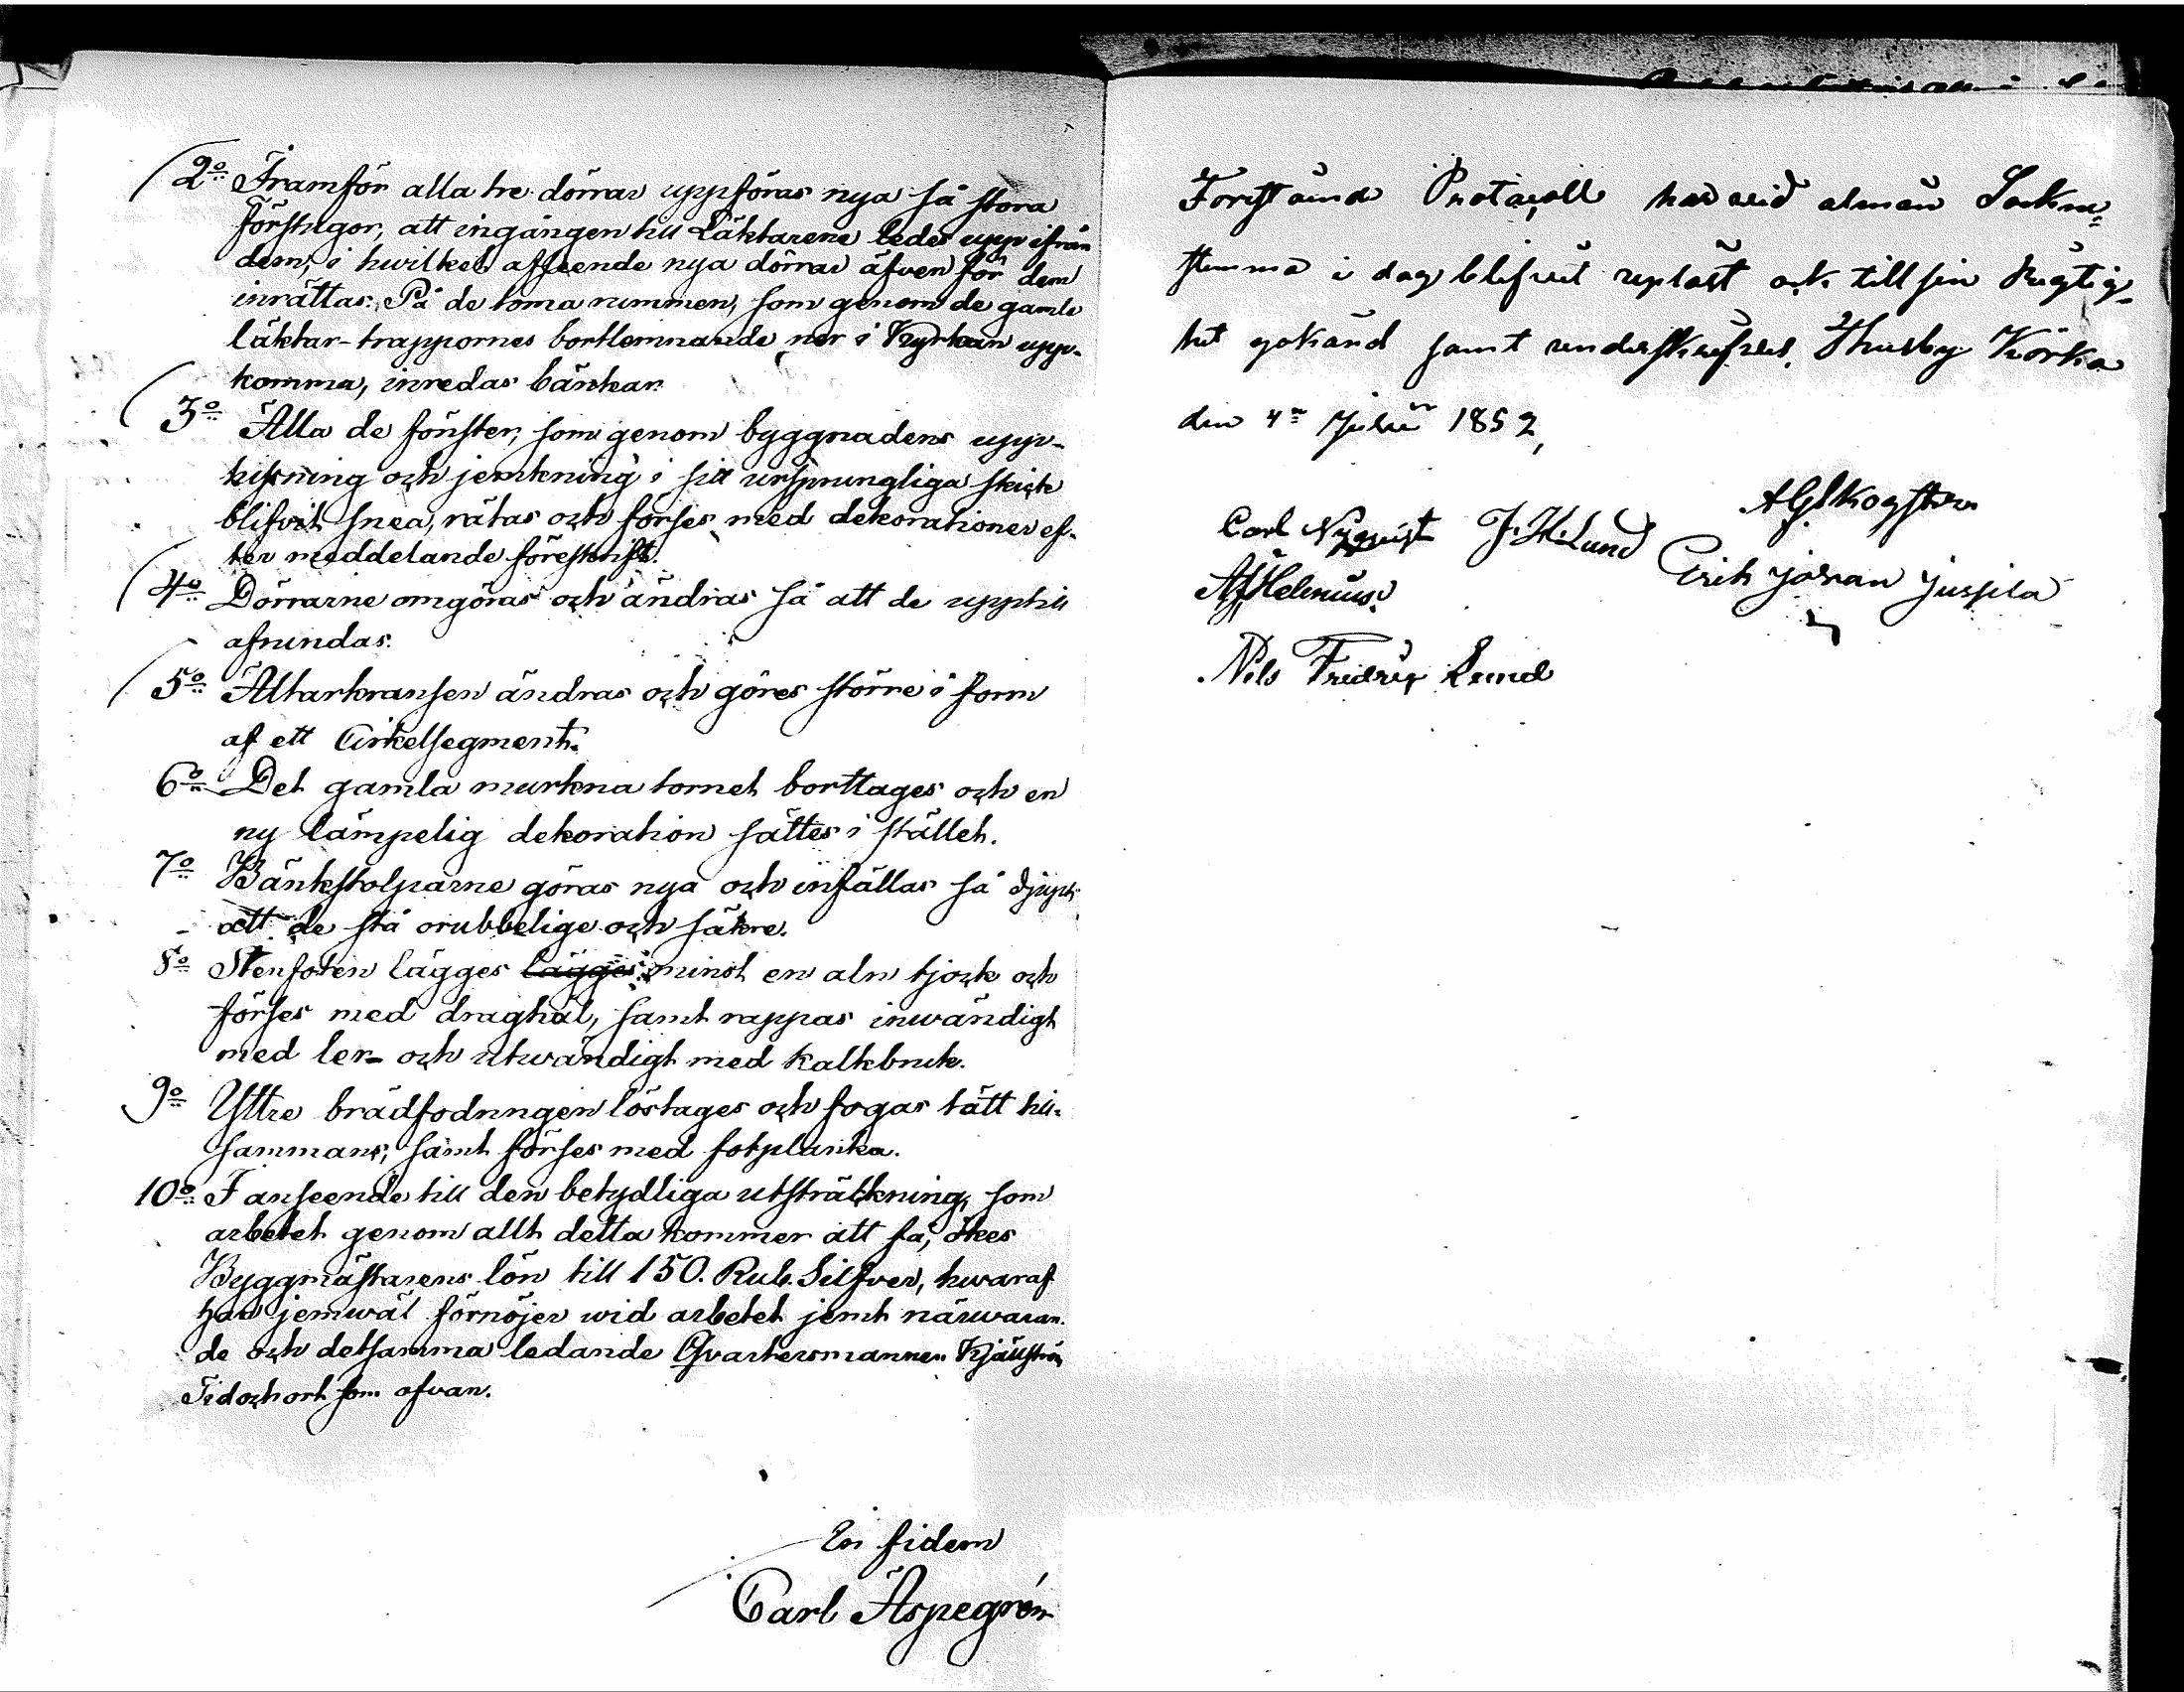 2º Framför alla tre dörrar uppföras nya så stora
förstugor, att ingången till Läktarene ledes upp ifrån
dem, i hwilket afseende nya dörrar äfven för dem
inrättas. På de toma rummen, som genom de gamle
läktar-trappornes bortlemnande ner i Kyrkan upp-
komma, inredas bänkar.
3º Alla de fönster, som genom byggnadens upp-
hissning och jemkning i sitt ursprungliga skick
blifvit snea, rätas och förses med dekorationer ef-
ter meddelande föreskrift.
4º Dörrarne omgöras och ändras så att de upptill
afrundas.
5º Altarkransen ändras och göres större i form
af ett Cirkelsegment.
6º Det gamla murkna tornet borttages och en
ny lämpelig dekoration sättes i stället.
7º Bänkstolparne göras nya och infällas så djupt
att de stå orubbelige och säkre.
8º Stenfoten lägges lägges minst en aln tjock och
förses med draghål, samt rappas inwändigt
med ler- och utwändigt med kalkbruk.
9º Yttre brädfodringen löstages och fogas tätt till-
sammans, samt förses med fotplanka.
10º I anseende till den betydliga utsträckning, som
arbetet genom allt detta kommer att få, ökes
Byggmästarens lön till 150. Rub. Silfver, hwaraf
han jemwäl förnöjer wid arbetet jemt närwaran-
de och detsamma ledande Qvartersmannen Kjällström
Tid och ort som ofvan.
In fidem
Carl Aspegrén
Forstånd Protacoll har vid almän Sockne-
stemma i dag blifvit upläst ock till sin Rigtig-
het gokänd samt underskrifves. Thusby Körka
den 4de Julii 1852,
Carl Nyqvist J. H. Lund AG Skogster
Af Helenius. Erik Johan Jussila
Nils Fredric Lund